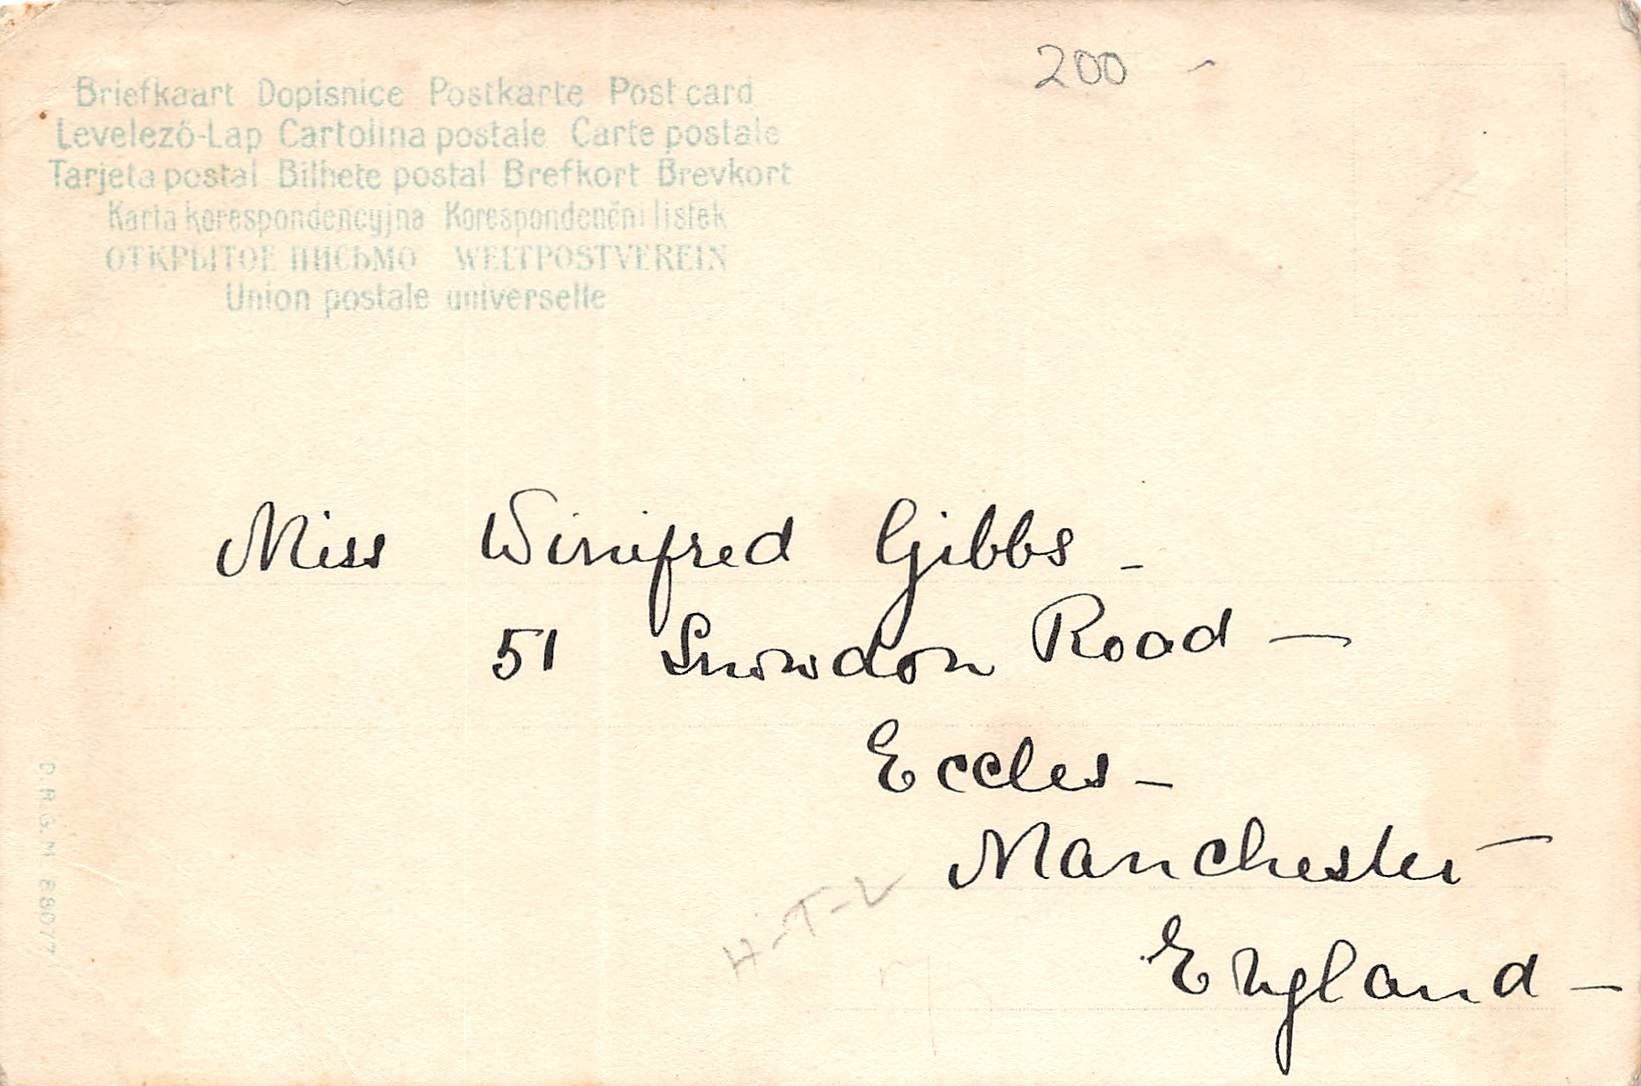 200 -
Briefkaart Dopisnice Postkarte Post card
Levelező-Lap Cartolina postale Carte postale
Tarjeta postal Bilhete postal Brefkort Brevkort
Karta korespondencyjna Korespondenčni listek
ОТКРЫТОЕ ПИСЬМО WELTPOSTVEREIN
Union postale universelle
Miss Winifred Gibbs -
51 Snowdon Road -
Eccles -
Manchester -
England -
H-T-L
D.R.G.M. 88077